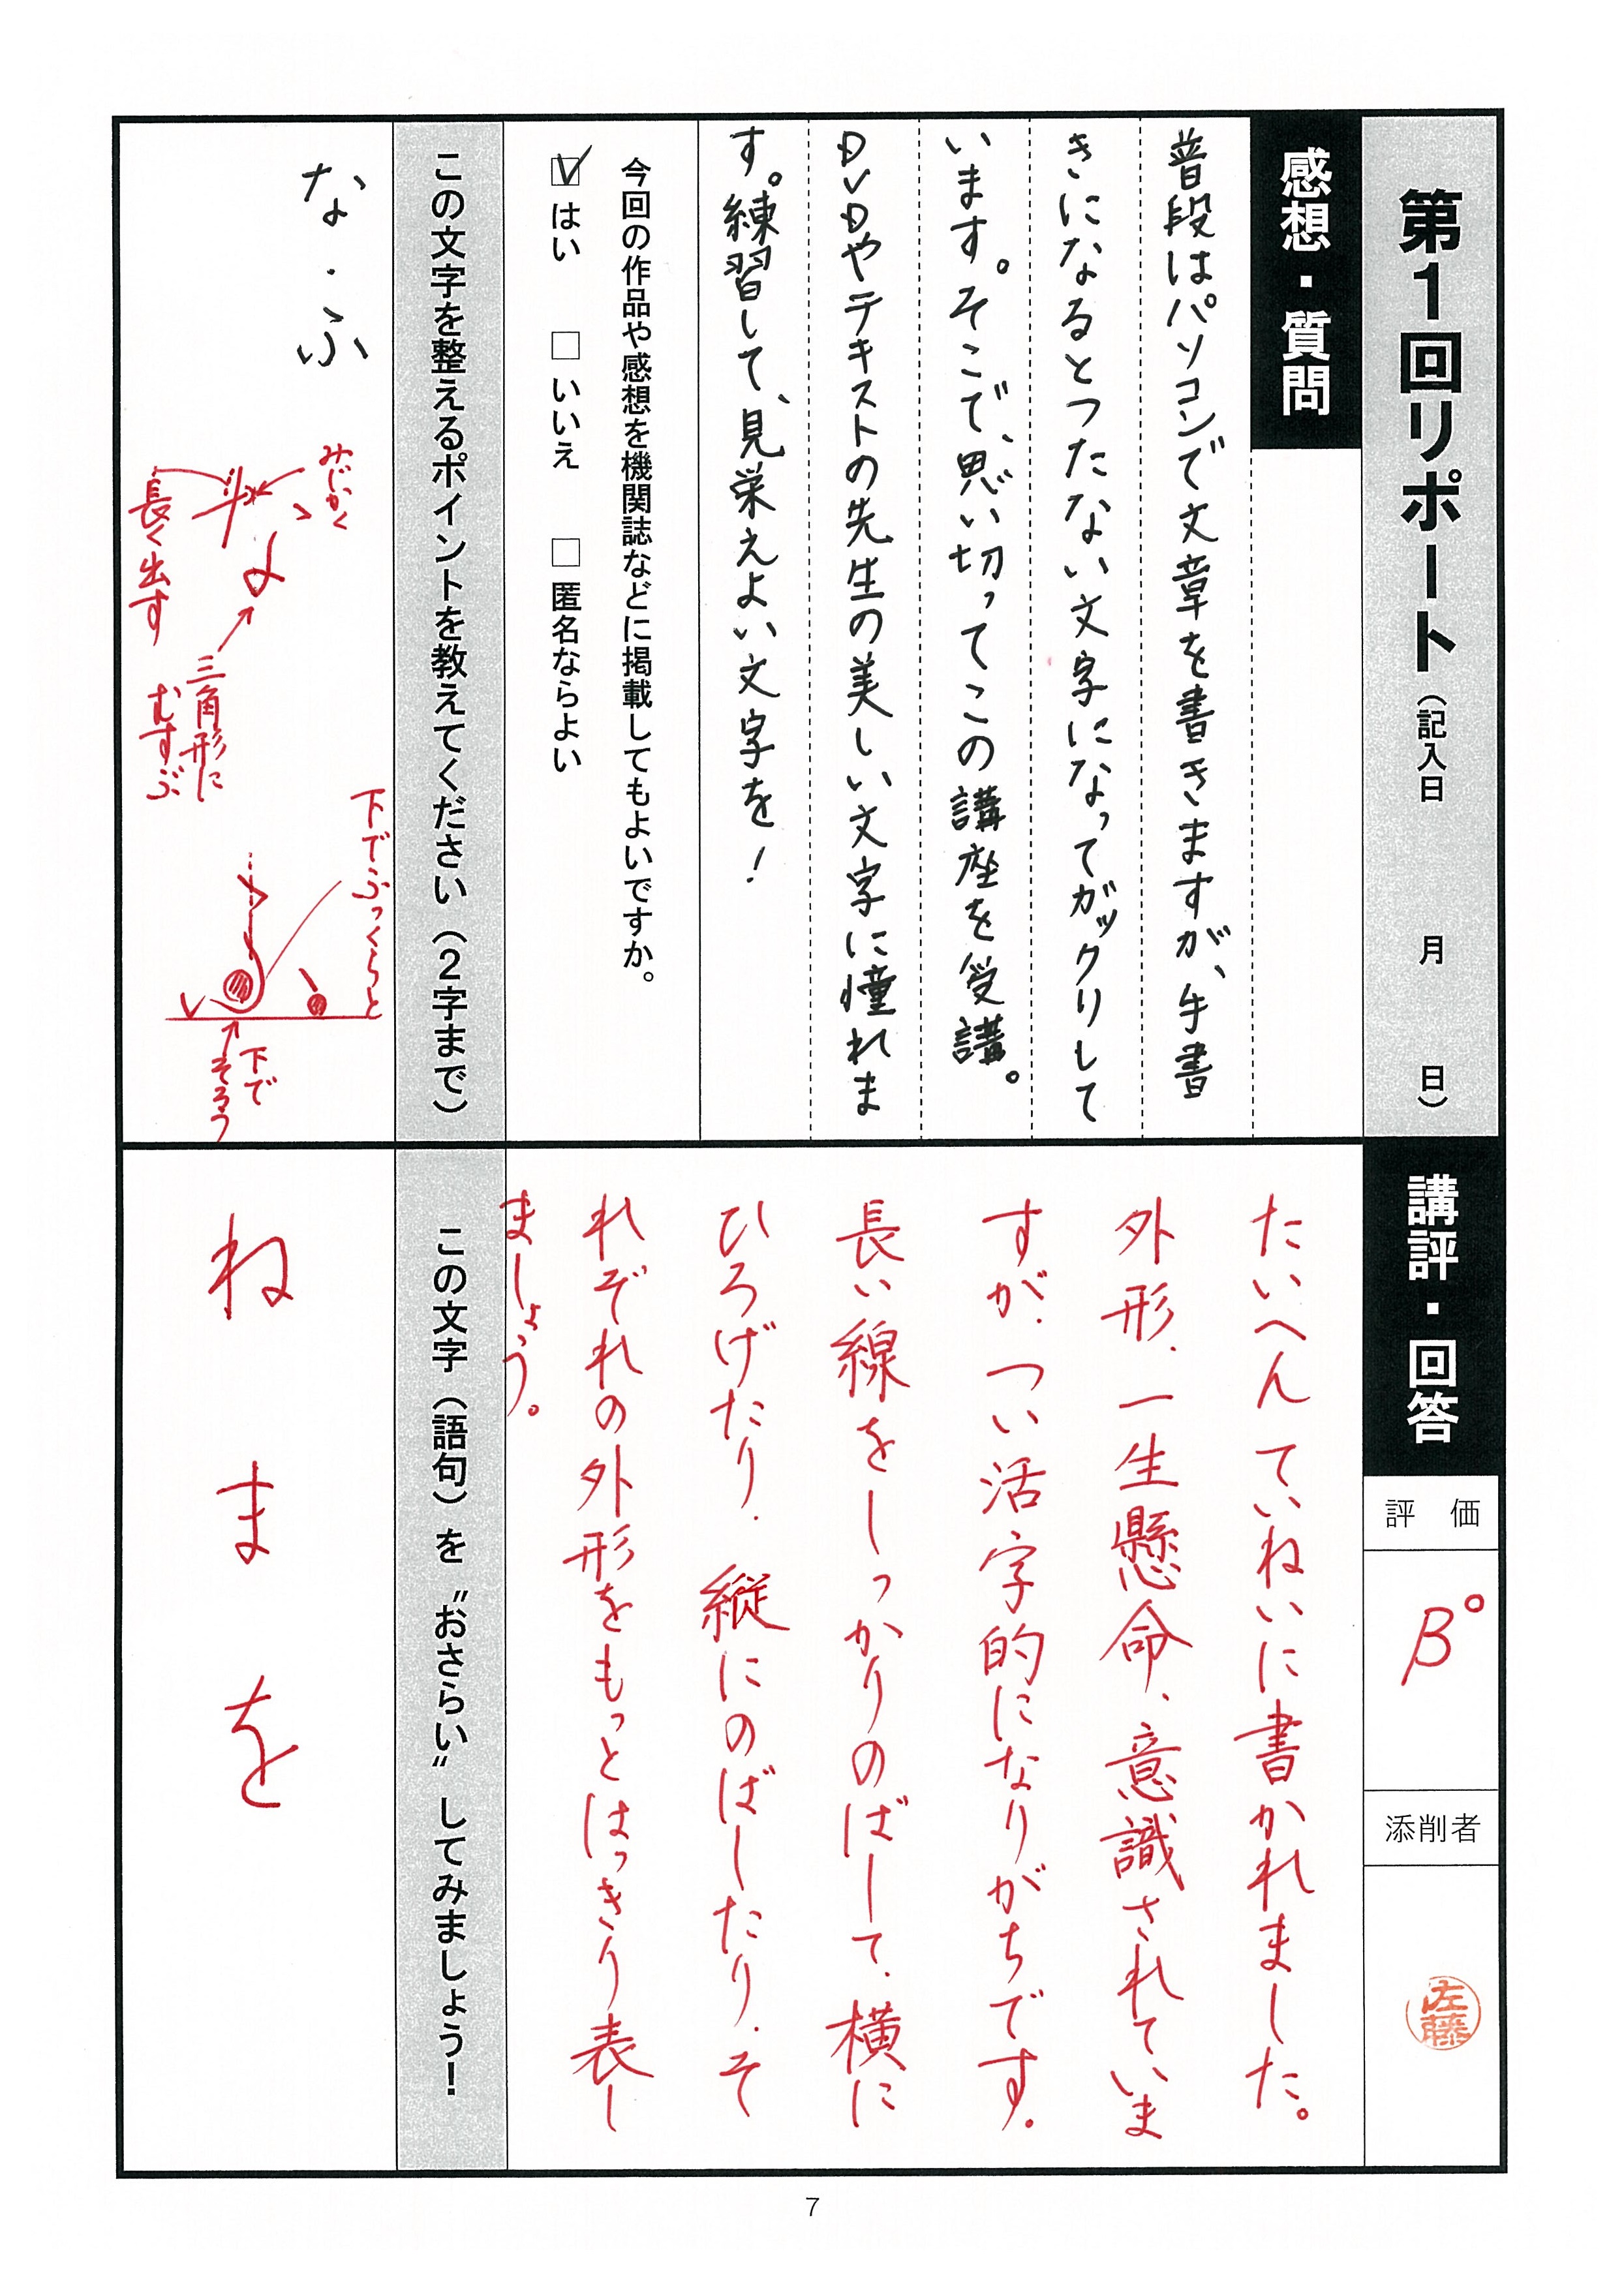 第1回リポート（記入日　月　日）
感想・質問
普段はパソコンで文章を書きますが、手書
きになるとつたない文字になってガックリして
います。そこで、思い切ってこの講座を受講。
DVDやテキストの先生の美しい文字に憧れま
す。練習して、見栄えよい文字を！
今回の作品や感想を機関誌などに掲載してもよいですか。
☑はい　□いいえ　□匿名ならよい
この文字を整えるポイントを教えてください（2字まで）
な・ふ
みじかく
長く出す
三角形に
むすぶ
下でふっくらと
下で
そろう
講評・回答
評価
B°
添削者
佐藤
たいへんていねいに書かれました。
外形、一生懸命、意識されていま
すが、つい活字的になりがちです。
長い線をしっかりのばして、横に
ひろげたり、縦にのばしたり、そ
れぞれの外形をもっとはっきり表し
ましょう。
この文字（語句）を〝おさらい〟してみましょう！
ね　ま　を
7